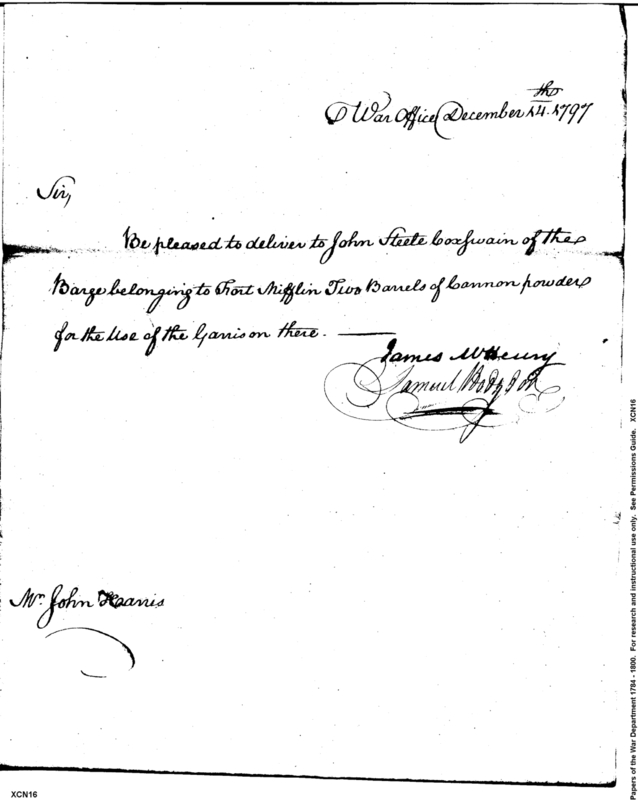 War Office December 14.th 1797
Sir,
Be pleased to deliver to John Steele Coxswain of the
Barge belonging to Fort Mifflin Two Barrels of Cannon powder
for the Use of the Garrison there. —
James McHenry
Samuel Hodgdon
Mr. John Harris
XCN16
Papers of the War Department 1784 - 1800. For research and instructional use only. See Permissions Guide. XCN16